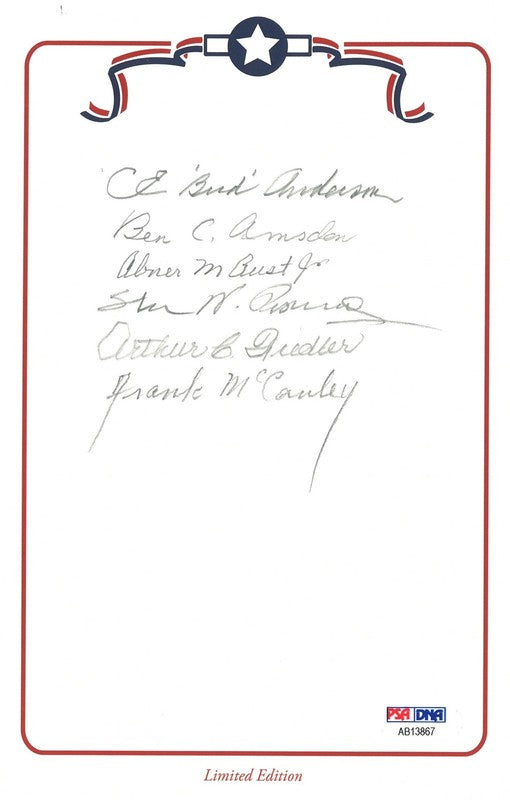 CE 'Bud' Anderson
Ben C. Amsden
Abner M Aust Jr
N.
Arthur C. Fiedler
Frank McCauley
PSA DNA
AB13867
Limited Edition